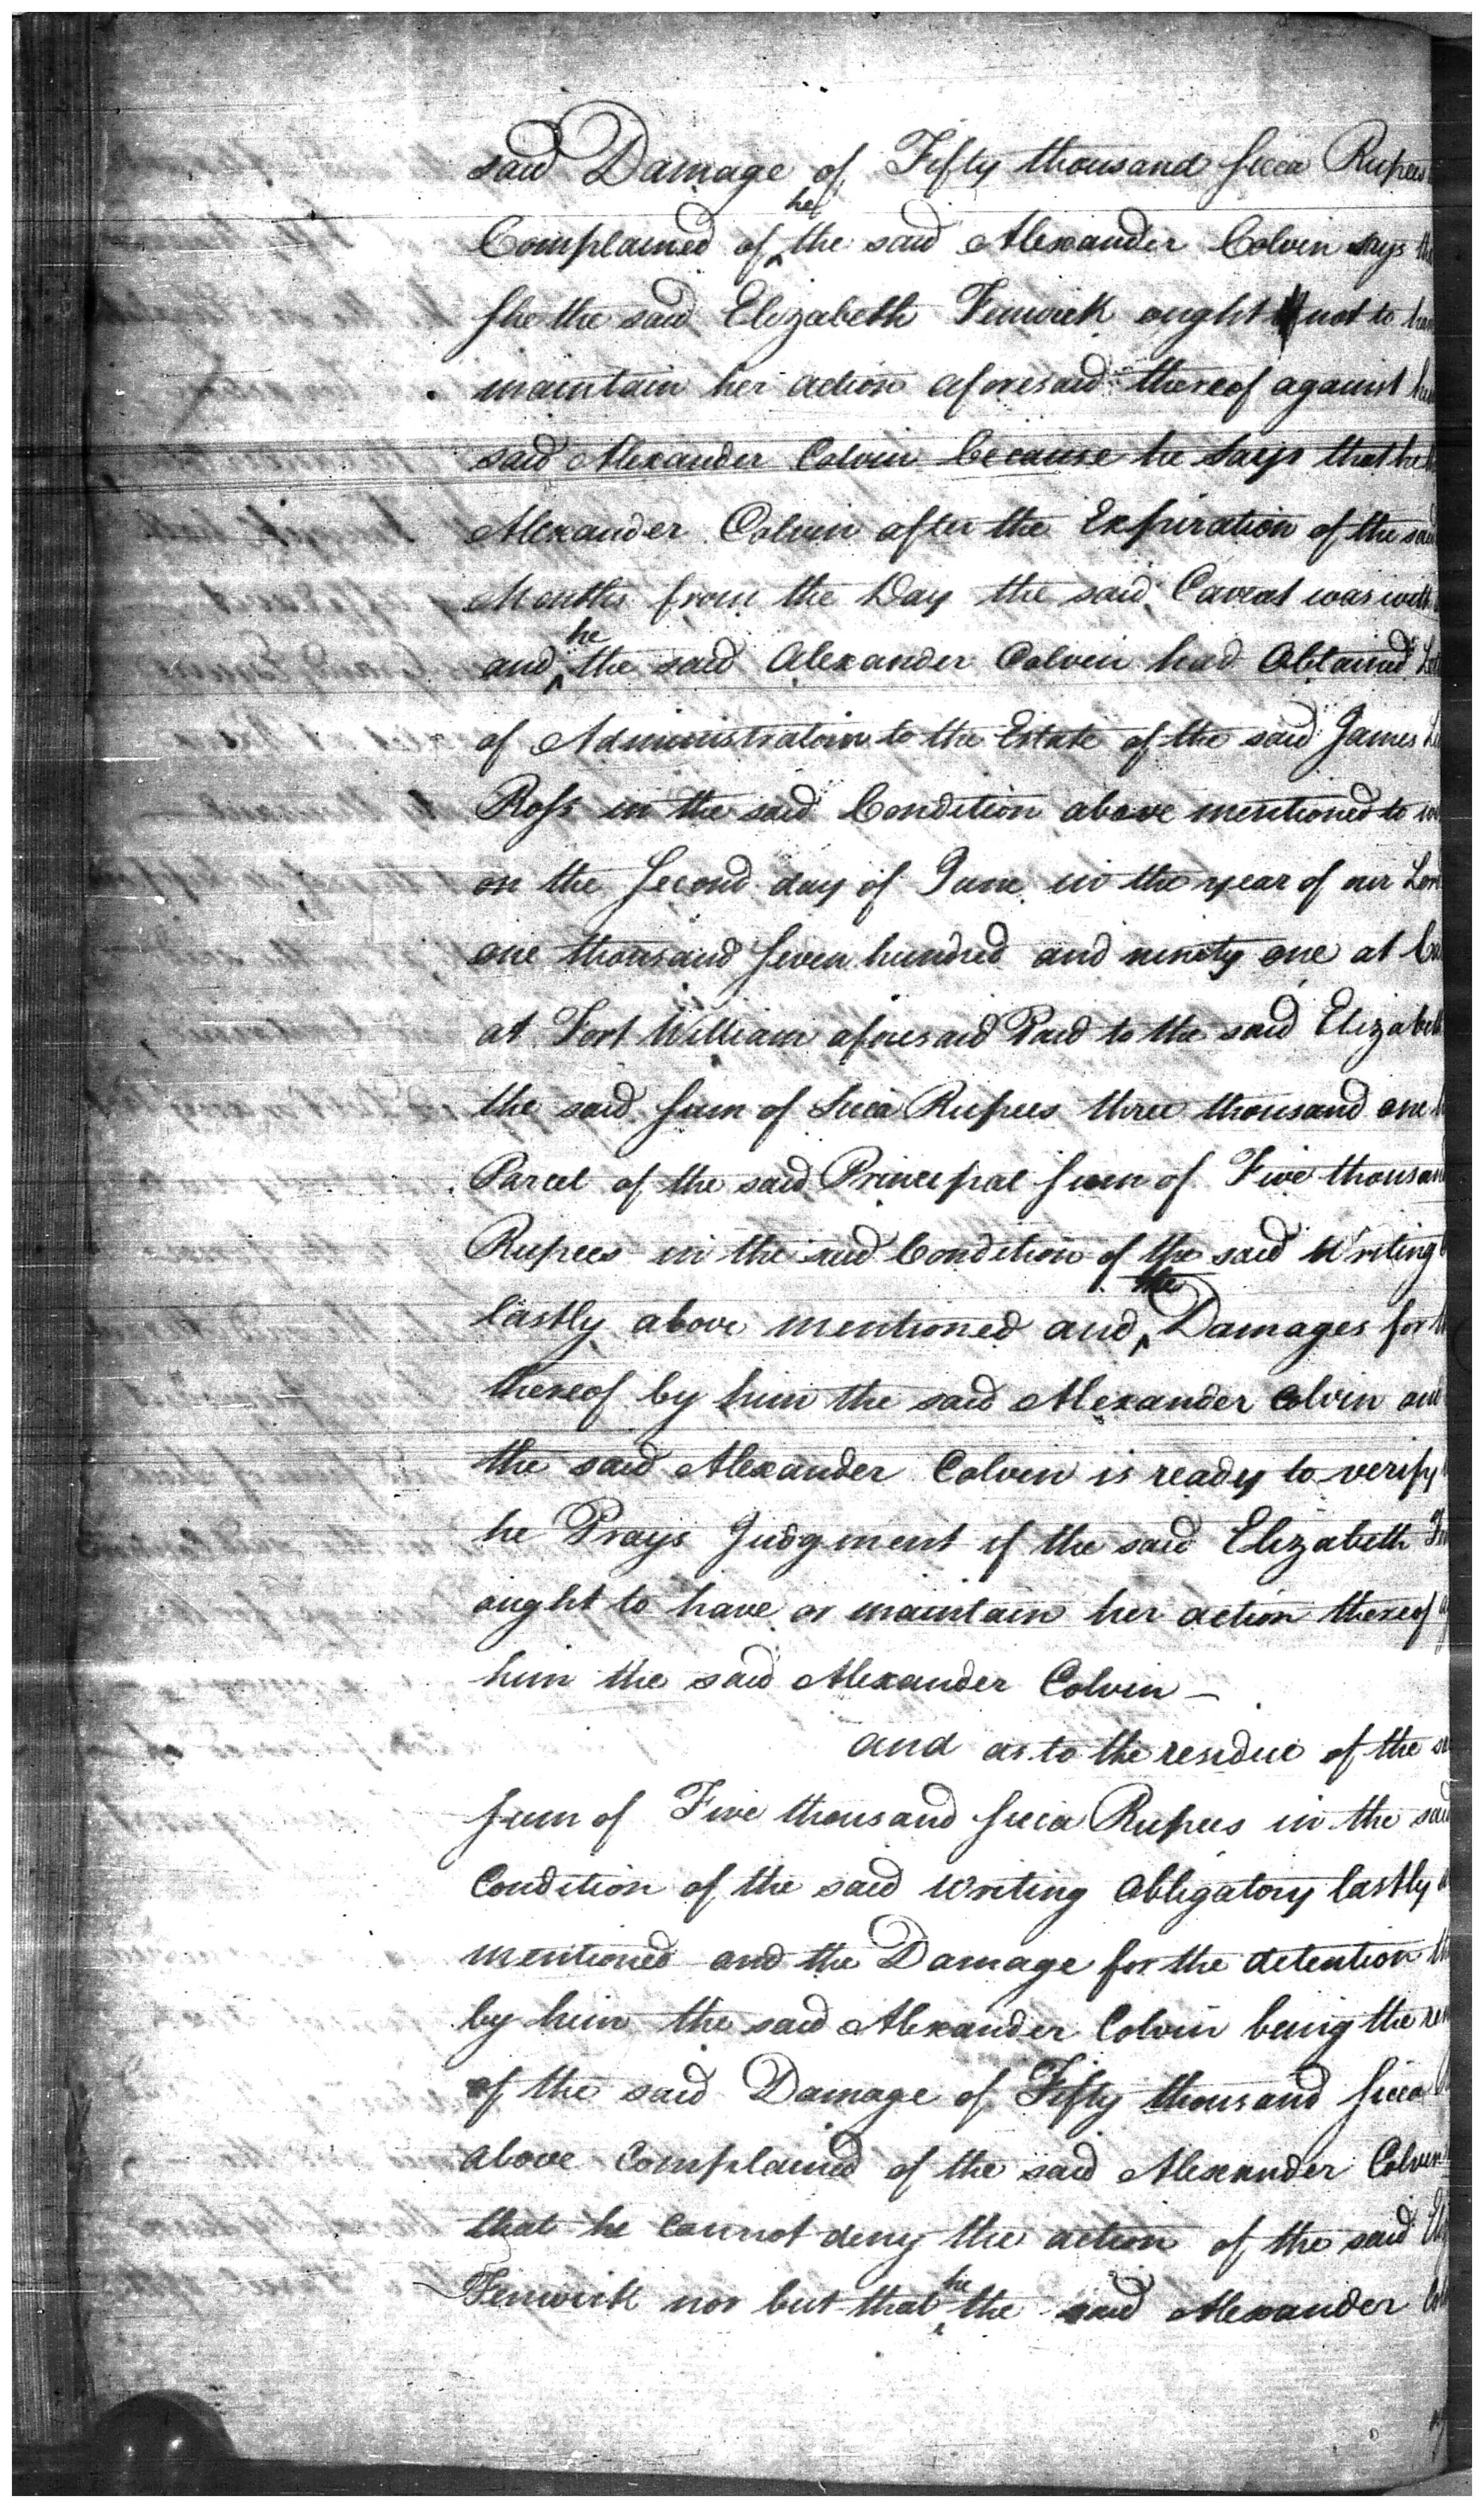 said Damage of Fifty thousand Sicca Rupees
Complained of he the said Alexander Colvin says
She the said Elizabeth Fenwick ought not to
maintain her action aforesaid thereof against
said Alexander Colvin because he says that he
Alexander Colvin after the Expiration of the said
Months from the Day the said Caveat was
and he the said Alexander Colvin had Obtained
of Administration to the Estate of the said James
Ross in the said Condition above mentioned to
on the Second day of June in the year of our Lord
one thousand Seven hundred and ninety one at
at Fort William aforesaid Paid to the said Elizabeth
the said Sum of Sicca Rupees three thousand one
Parcel of the said Principal Sum of Five thousand
Rupees in the said Condition of the said Writing
lastly above mentioned and the Damages for
thereof by him the said Alexander Colvin and
the said Alexander Colvin is ready to verify
he Prays Judgment if the said Elizabeth
ought to have or maintain her action thereof
him the said Alexander Colvin –
and as to the residue of the
Sum of Five thousand Sicca Rupees in the said
Condition of the said Writing Obligatory lastly
mentioned and the Damage for the detention
by him the said Alexander Colvin being the
of the said Damage of Fifty thousand Sicca
above Complained of the said Alexander Colvin
that he cannot deny the action of the said
Fenwick nor but that he the said Alexander